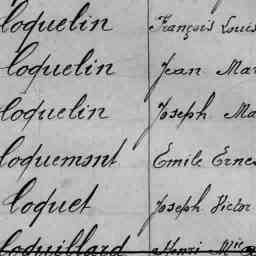 Coquelin François Louis
Coquelin Jean Mar
Coquelin Joseph Ma
Coquemont Emile Ernes
Coquet Joseph Victor
Coquillard Henri Mie